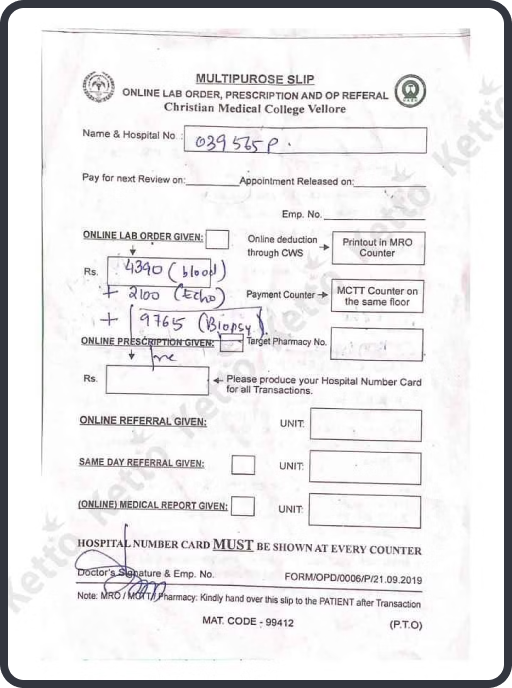 MULTIPUROSE SLIP
ONLINE LAB ORDER, PRESCRIPTION AND OP REFERAL
Christian Medical College Vellore
Name & Hospital No. : 039565P.
Pay for next Review on: Appointment Released on:
Emp. No.
ONLINE LAB ORDER GIVEN: Online deduction through CWS → Printout in MRO Counter
Rs. 4390 (blood)
+ 2100 (Echo) Payment Counter → MCTT Counter on the same floor
+ 9765 (Biopsy).
ONLINE PRESCRIPTION GIVEN: Target Pharmacy No.
Rs. ← Please produce your Hospital Number Card
for all Transactions.
ONLINE REFERRAL GIVEN: UNIT:
SAME DAY REFERRAL GIVEN: UNIT:
(ONLINE) MEDICAL REPORT GIVEN: UNIT:
HOSPITAL NUMBER CARD MUST BE SHOWN AT EVERY COUNTER
Doctor's Signature & Emp. No. FORM/OPD/0006/P/21.09.2019
Note: MRO / MCTT / Pharmacy: Kindly hand over this slip to the PATIENT after Transaction
MAT. CODE - 99412 (P.T.O)
Ketto Ketto Ketto Ketto Ketto Ketto